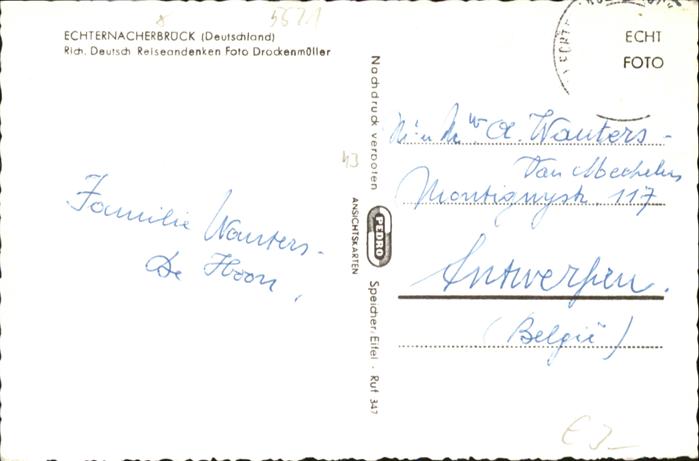 5521
ECHTERNACHERBRÜCK (Deutschland)
Rich. Deutsch Reiseandenken Foto Drockenmüller
Familie Wauters-
De Hoon,
43
Nachdruck verboten
ANSICHTSKARTEN
PEDRO
Speicher, Eifel · Ruf 347
ECHT
FOTO
A. Wauters-
Van Mechelen
Montignystr. 117
Antwerpen.
(België)